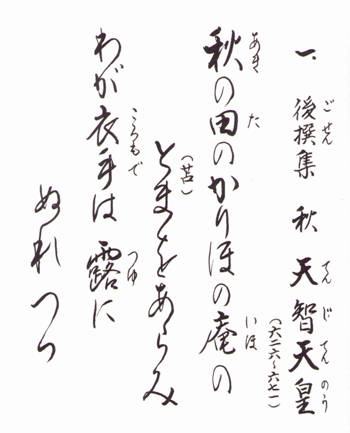 一、後撰集 秋 天智天皇
ごせん てんじてんのう
(六二六〜六七一)
あき た いほ
秋の田のかりほの庵の
(苫)
とまをあらみ
ころもで つゆ
わが衣手は露に
ぬれつつ